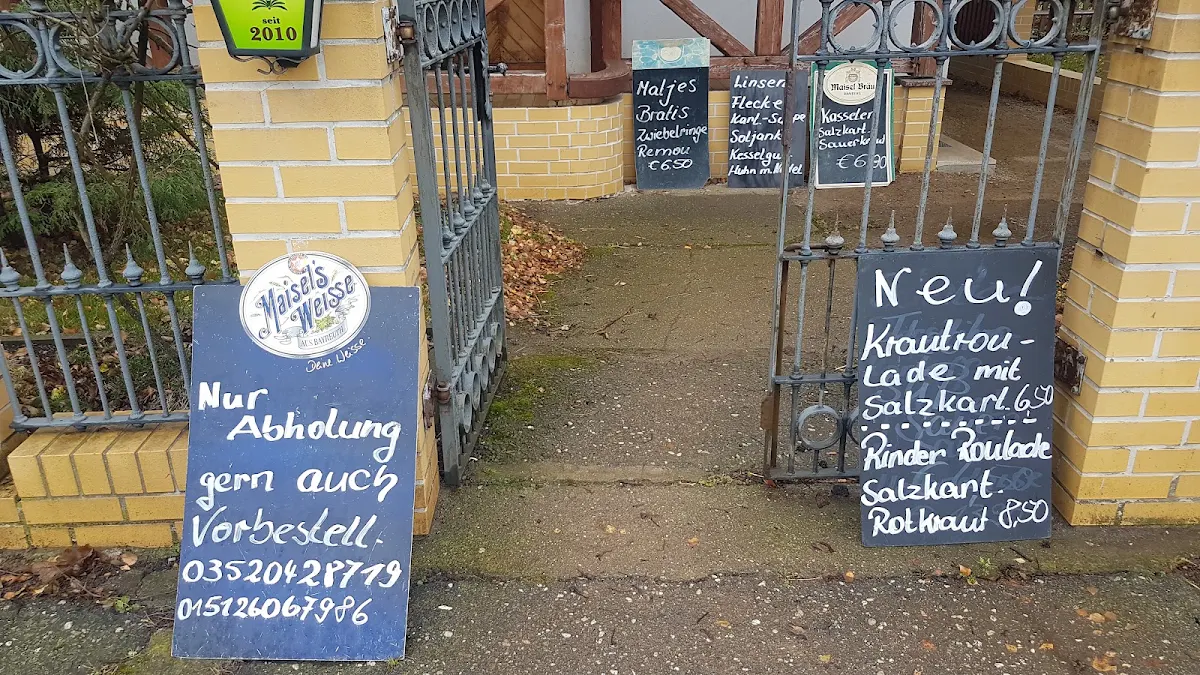 seit
2010
Matjes
Bratis
Zwiebelringe
Remou
€6.50
Linsen
Flecke
Kart-
Soljank
Kesselgu
Huhn m.
Maisel Bräu
Kasseler
Salzkart
Sauerkraut
Maisel's
Weisse
AUS BAYREUTH
Deine Weisse.
Nur
Abholung
gern auch
Vorbestell.
03520428719
015126067986
Neu!
Krautrou-
lade mit
Salzkart. 6,50
Rinder Roulade
Salzkart.
Rotkraut 8,50